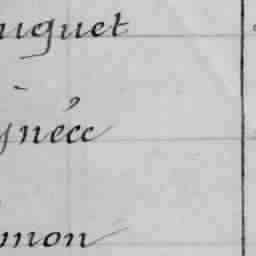 uguet
ynécc
mon